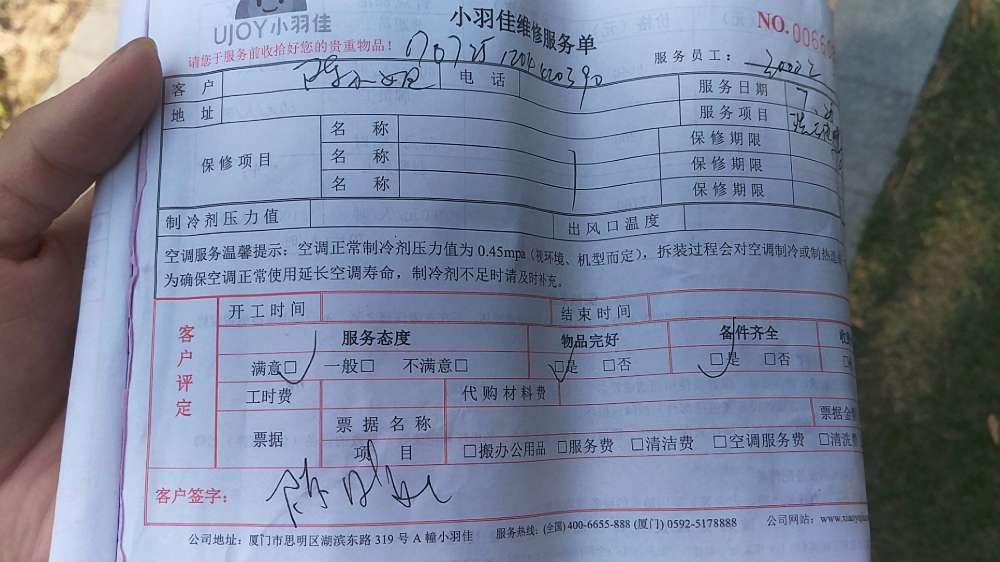 UJOY小羽佳
小羽佳维修服务单
NO.0066
请您于服务前收拾好您的贵重物品!
服务员工:
客户 电话 服务日期
地址 服务项目
保修项目 名称 保修期限
名称 保修期限
名称 保修期限
制冷剂压力值 出风口温度
空调服务温馨提示:空调正常制冷剂压力值为0.45mpa(视环境、机型而定),拆装过程会对空调制冷或制热造
为确保空调正常使用延长空调寿命,制冷剂不足时请及时补充。
客户评定
开工时间 结束时间
服务态度 物品完好 备件齐全
满意□ 一般□ 不满意□ □是 □否 □是 □否
工时费 代购材料费
票据 票据名称 票据金
项目 □搬办公用品 □服务费 □清洁费 □空调服务费 □清洗
客户签字:
公司地址:厦门市思明区湖滨东路319号A幢小羽佳 服务热线:(全国)400-6655-888 (厦门) 0592-5178888 公司网站:www.xiaoyu